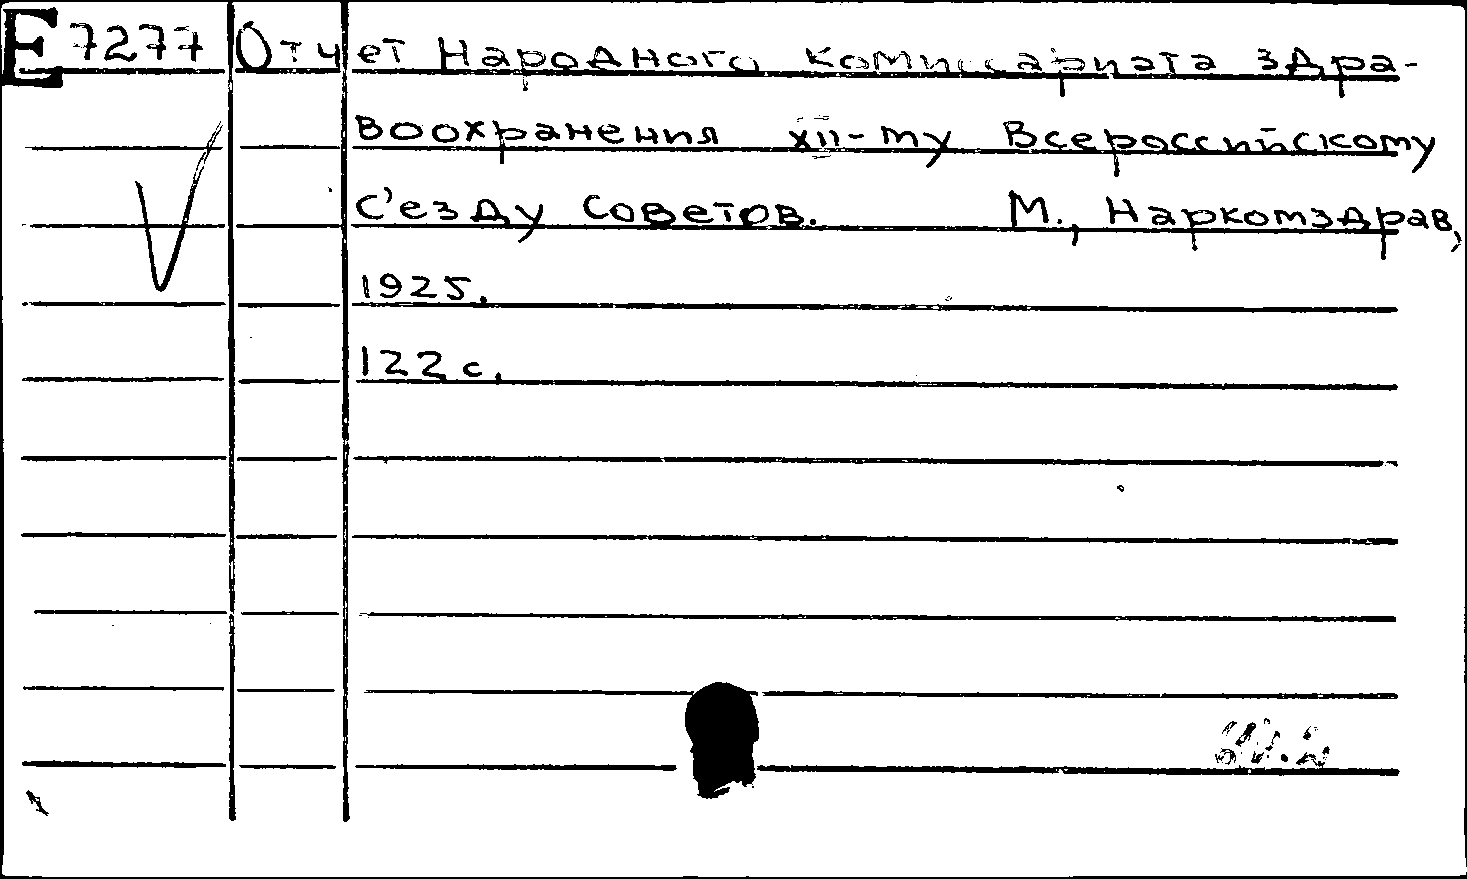 Е 7277 Отчет Народного комиссариата здра-
воохранения XII-му Всероссийскому
С'езду Советов. М., Наркомздрав,
1925.
122 с.